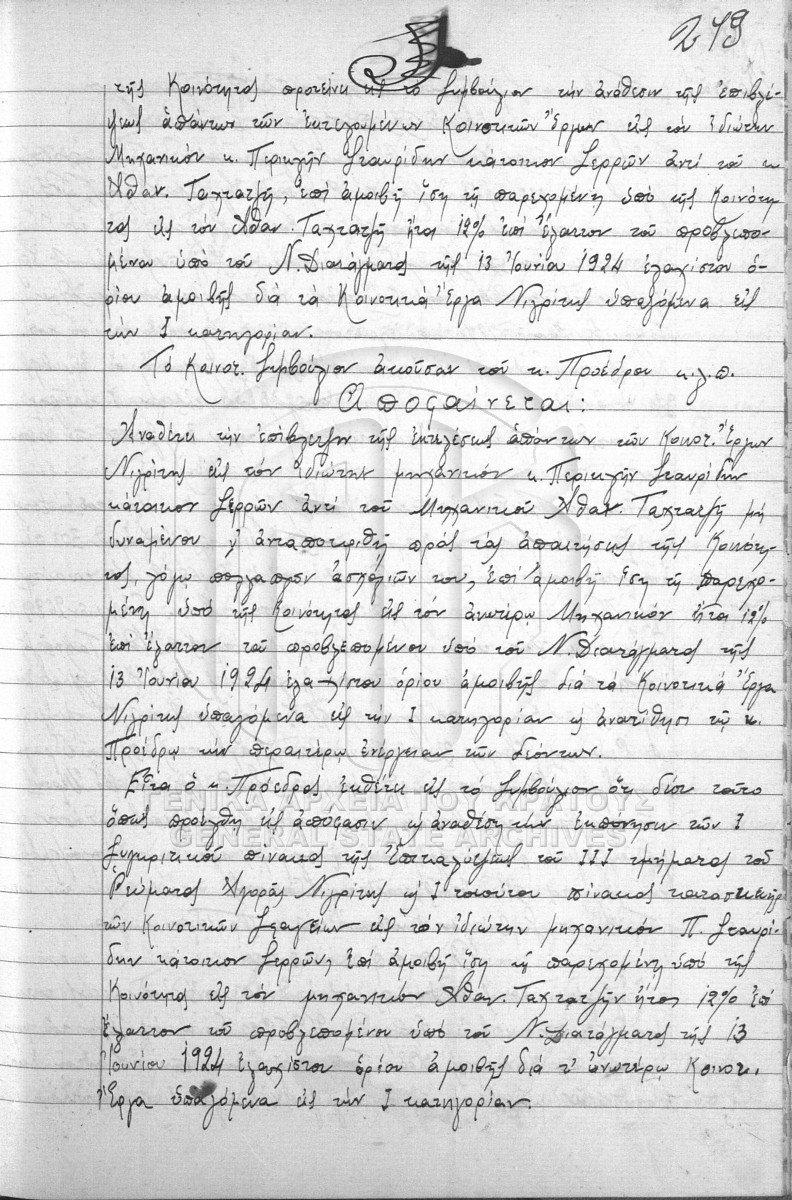 219
τῆς Κοινότητος προτείνει εἰς τὸ Συμβούλιον τὴν ἀνάθεσιν τῆς ἐπιβλέ-
ψεως ἁπάντων τῶν ἐκτελουμένων Κοινοτικῶν Ἔργων εἰς τὸν ἰδιώτην
Μηχανικὸν κ. Περικλῆν Σταυρίδην κάτοικον Σερρῶν ἀντὶ τοῦ κ.
Ἀθαν. Ταχτατζῆ, ἐπὶ ἀμοιβῇ ἴσῃ τῇ παρεχομένῃ ὑπὸ τῆς Κοινότη-
τος εἰς τὸν Ἀθαν. Ταχτατζῆ ἤτοι 12% ἐπὶ ἔλαττον τοῦ προβλεπο-
μένου ὑπὸ τοῦ Ν. Διατάγματος τῆς 13 Ἰουνίου 1924 ἐλαχίστου ὁ-
ρίου ἀμοιβῆς διὰ τὰ Κοινοτικὰ Ἔργα Νιγρίτης ὑπαγόμενα εἰς
τὴν Ι κατηγορίαν.
Τὸ Κοινοτ. Συμβούλιον ἀκοῦσαν τοῦ κ. Προέδρου κ.λ.π.
Ἀποφαίνεται:
Ἀναθέτει τὴν ἐπίβλεψιν τῆς ἐκτελέσεως ἁπάντων τῶν Κοινοτ. Ἔργων
Νιγρίτης εἰς τὸν ἰδιώτην μηχανικὸν κ. Περικλῆν Σταυρίδην
κάτοικον Σερρῶν ἀντὶ τοῦ Μηχανικοῦ Ἀθαν. Ταχτατζῆ μὴ
δυναμένου ν' ἀνταποκριθῇ πρὸς τὰς ἀπαιτήσεις τῆς Κοινότη-
τος, λόγῳ πολλαπλῶν ἀσχολιῶν του, ἐπὶ ἀμοιβῇ ἴσῃ τῇ παρεχο-
μένῃ ὑπὸ τῆς Κοινότητος εἰς τὸν ἀνωτέρω Μηχανικὸν ἤτοι 12%
ἐπὶ ἔλαττον τοῦ προβλεπομένου ὑπὸ τοῦ Ν. Διατάγματος τῆς
13 Ἰουνίου 1924 ἐλαχίστου ὁρίου ἀμοιβῆς διὰ τὰ Κοινοτικὰ Ἔργα
Νιγρίτης ὑπαγόμενα εἰς τὴν Ι κατηγορίαν κ ἀνατίθησι τῷ κ.
Προέδρῳ τὴν περαιτέρω ἐνέργειαν τῶν δεόντων.
Εἶτα ὁ κ. Πρόεδρος ἐκθέτει εἰς τὸ Συμβούλιον ὅτι δέον τοῦτο
ὅπως προέλθῃ εἰς ἀπόφασιν κ ἀναθέσῃ τὴν ἐκπόνησιν τῶν Ι
Συγκριτικοῦ πίνακος τῆς ἐπικαλύψεως τοῦ ΙΙΙ τμήματος τοῦ
Ρεύματος Ἀγορᾶς Νιγρίτης κ Ι τοιούτου πίνακος κατασκευῆς
τῶν Κοινοτικῶν Σφαγείων εἰς τὸν ἰδιώτην μηχανικὸν Π. Σταυρί-
δην κάτοικον Σερρῶν, ἐπὶ ἀμοιβῇ ἴσῃ τῇ παρεχομένῃ ὑπὸ τῆς
Κοινότητος εἰς τὸν μηχανικὸν Ἀθαν. Ταχτατζῆν ἤτοι 12% ἐπὶ
ἔλαττον τοῦ προβλεπομένου ὑπὸ τοῦ Ν. Διατάγματος τῆς 13
Ἰουνίου 1924 ἐλαχίστου ὁρίου ἀμοιβῆς διὰ τ' ἀνωτέρω Κοινοτ.
Ἔργα ὑπαγόμενα εἰς τὴν Ι κατηγορίαν.
ΓΕΝΙΚΑ ΑΡΧΕΙΑ ΤΟΥ ΚΡΑΤΟΥΣ
GENERAL STATE ARCHIVES